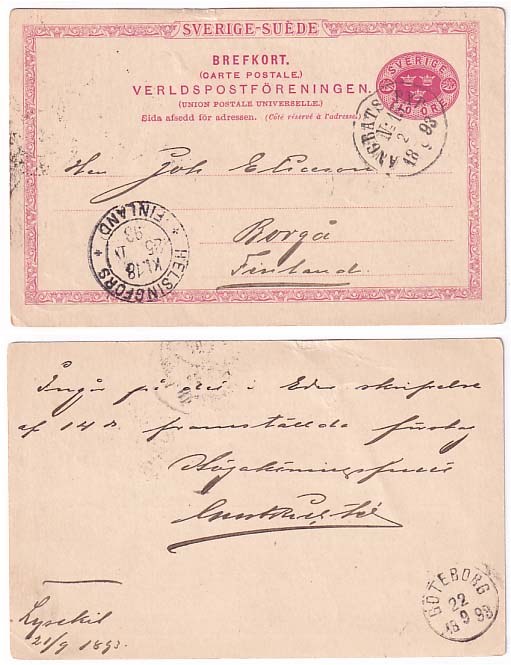 SVERIGE-SUÈDE
BREFKORT.
(CARTE POSTALE.)
VERLDSPOSTFÖRENINGEN.
(UNION POSTALE UNIVERSELLE.)
Sida afsedd för adressen. (Côté réservé à l'adresse.)
SVERIGE
TIO ÖRE
ÅNGBÅTS
18 93
Herr Joh Ericsson
Borgå
Finland.
HELSINGFORS
FINLAND
KL.18
25 IX
93
Ingår på det i Eder skrifvelse
af 14 ds framställda förslag
Högaktningsfullt
Lysekil
21/9 1893
GÖTEBORG
22
18 9 93